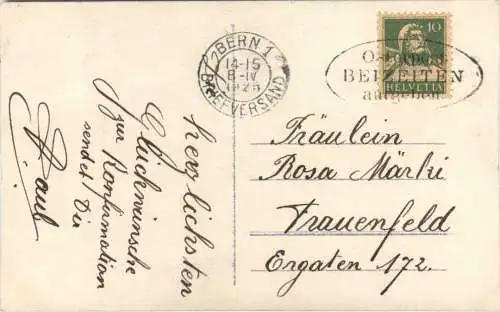 herzlichsten
Glückwünsche
zur Konfirmation
sendet Dir
Paul
BERN 1
14-15
8-IV
BRIEFVERSAND
10
HELVETIA
BEIZEITEN
aufgeben
Fräulein
Rosa Märki
Frauenfeld
Ergaten 172.